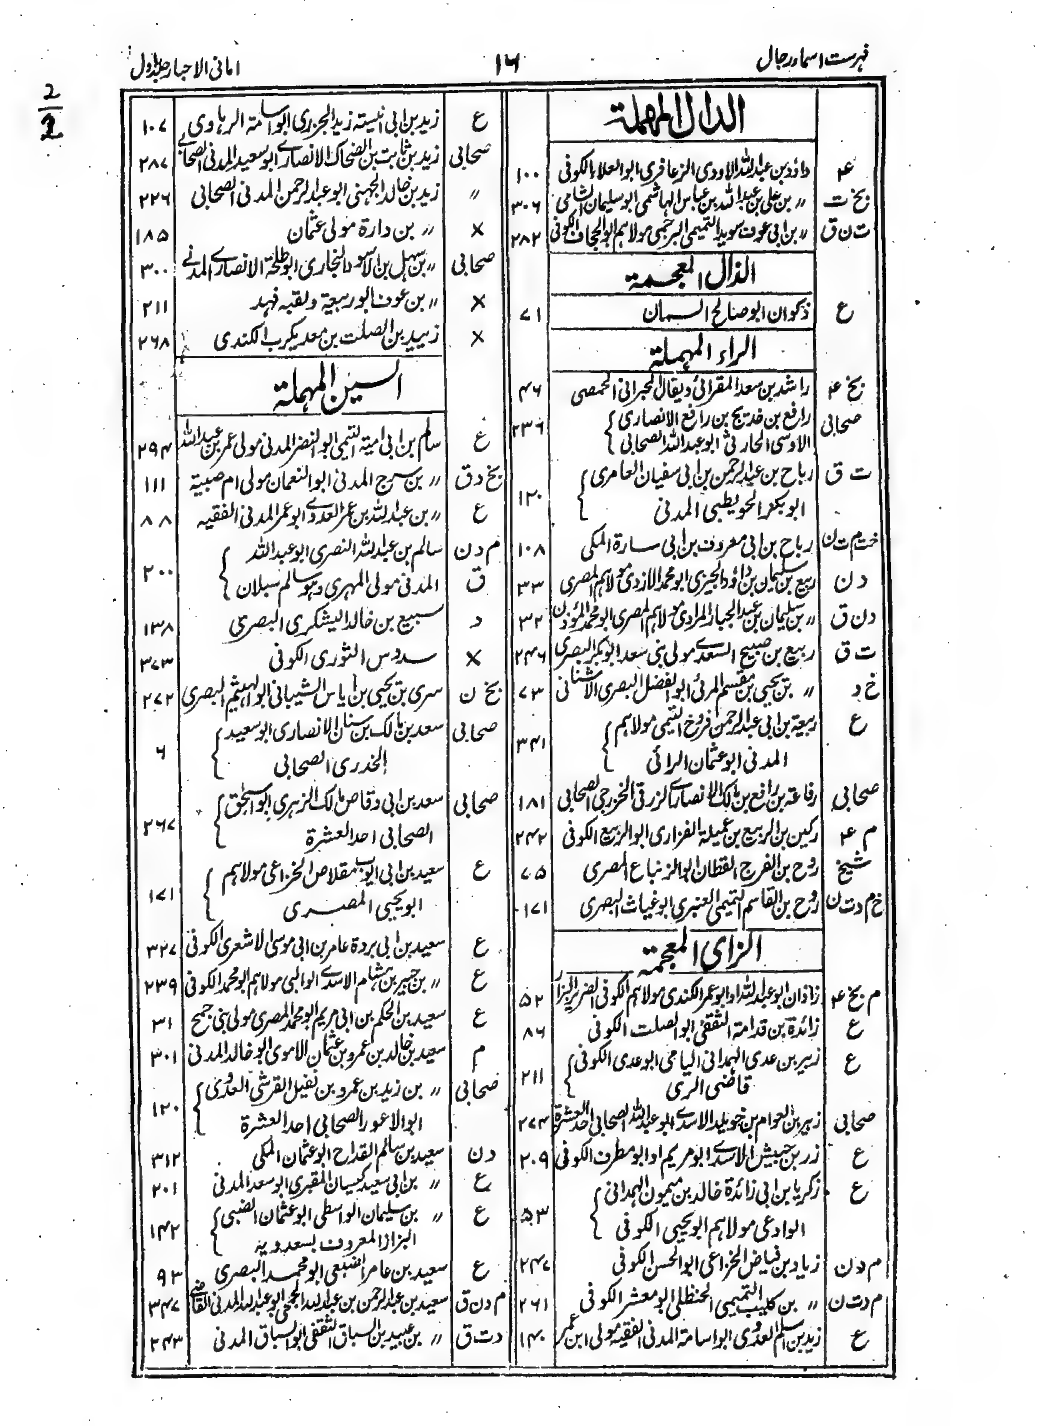 فہرست اسماء رجال
۱۶
امانی الاحبار جلد اول
2
2
الدال المهملة
۴ء داؤد بن عبداللہ الاودی الزعافری ابو العلاء الکوفی ۱۰۰
بخ ت ” بن علی بن عبداللہ بن عباس الہاشمی ابو سلیمان الشامی ۳۰۶
ت ن ق ” بن ابی عوف سوید التمیمی البرجمی مولاہم ابو الجحاف الکوفی ۲۸۲
الذال المعجمة
ع ذکوان ابو صالح السمان ۷۱
الراء المهملة
بخ ۴ء راشد بن سعد المقرائی ویقال الحبرانی الحمصی ۴۶
صحابی رافع بن خدیج بن رافع الانصاری
الاوسی الحارثی ابو عبداللہ الصحابی ۲۳۶
ت ق رباح بن عبدالرحمن بن ابی سفیان العامری
ابوبکر الحویطبی المدنی ۱۲۰
خت م ت ن رباح بن ابی معروف بن ابی سارۃ المکی ۱۰۸
د ن ربیع بن سلیمان بن داؤد الجیزی ابو محمد الازدی مولاہم المصری ۳۳
د ن ق ” بن سلیمان بن عبدالجبار المرادی مولاہم المصری ابو محمد المؤذن ۳۲
ت ق ربیع بن صبیح السعدی مولی بنی سعد ابوبکر البصری ۲۴۶
خ د ” بن یحیی بن مقسم المرئی ابو الفضل البصری الاشنانی ۷۳
ع ربیعۃ بن ابی عبدالرحمن فروخ التیمی مولاہم
المدنی ابو عثمان الرائی ۳۴۱
صحابی رفاعۃ بن رافع بن مالک الانصاری الزرقی الخزرجی الصحابی ۱۸۱
م ۴ء رکین بن الربیع بن عمیلۃ الفزاری ابو الربیع الکوفی ۲۴۲
شیخ روح بن الفرج القطان ابو الزنباع المصری ۷۵
خ م د ت ن روح بن القاسم التمیمی العنبری ابو غیاث البصری ۱۷۱
الزای المعجمة
م بخ ۴ء زاذان ابو عبداللہ او ابو عمر الکندی مولاہم الکوفی الضریر البزار ۵۲
ع زائدۃ بن قدامۃ الثقفی ابو الصلت الکوفی ۸۶
ع زبیر بن عدی الہمدانی الیامی ابو عدی الکوفی
قاضی الری ۲۱۱
صحابی زبیر بن العوام بن خویلد الاسدی ابو عبداللہ الصحابی احد العشرۃ ۲۷۴
ع زر بن حبیش الاسدی ابو مریم او ابو مطرف الکوفی ۲۰۹
ع زکریا بن ابی زائدۃ خالد بن میمون الہمدانی
الوادعی مولاہم ابو یحیی الکوفی ۵۳
م د ن زیاد بن فیاض الخزاعی ابو الحسن الکوفی ۲۴۷
م د ت ن ” بن کلیب التمیمی الحنظلی ابو معشر الکوفی ۲۶۱
ع زید بن اسلم العدوی ابو اسامۃ المدنی الفقیہ مولی ابن عمر ۱۴۰
ع زید بن ابی انیسۃ زید الجزری ابو اسامۃ الرہاوی ۱۰۷
صحابی زید بن ثابت بن الضحاک الانصاری ابو سعید المدنی الصحابی ۲۸۷
” زید بن خالد الجہنی ابو عبدالرحمن المدنی الصحابی ۲۲۶
× ” بن دارۃ مولی عثمان ۱۸۵
صحابی ” بن سہل بن الاسود النجاری ابو طلحۃ الانصاری المدنی ۳۰۰
× ” بن عوف ابو ربیعۃ ولقبہ فہد ۲۱۱
× زبید بن الصلت بن معد یکرب الکندی ۲۶۸
السین المهملة
ع سالم بن ابی امیۃ التیمی ابو النضر المدنی مولی عمر بن عبیداللہ ۲۹۴
بخ د ق ” بن سرج المدنی ابو النعمان مولی ام صبیۃ ۱۱۱
ع ” بن عبداللہ بن عمر العدوی ابو عمر المدنی الفقیہ ۸۸
م د ن سالم بن عبداللہ النصری ابو عبداللہ
ق المدنی مولی المہری وہو سالم سبلان ۲۰۰
د سبیع بن خالد الیشکری البصری ۱۳۸
× سدوس الثوری الکوفی ۳۷۳
بخ ن سری بن یحیی بن ایاس الشیبانی ابو الہیثم البصری ۲۷۲
صحابی سعد بن مالک بن سنان الانصاری ابو سعید
الخدری الصحابی ۶
صحابی سعد بن ابی وقاص مالک الزہری ابو اسحق
الصحابی احد العشرۃ ۲۶۷
ع سعید بن ابی ایوب مقلاص الخزاعی مولاہم
ابو یحیی المصری ۱۷۱
ع سعید بن ابی بردۃ عامر بن ابی موسی الاشعری الکوفی ۳۲۷
ع ” بن جبیر بن ہشام الاسدی الوالبی مولاہم ابو محمد الکوفی ۲۳۹
ع سعید بن الحکم بن ابی مریم ابو محمد المصری مولی بنی جمح ۳۱
م سعید بن خالد بن عمرو بن عثمان الاموی ابو خالد المدنی ۳۰۱
صحابی ” بن زید بن عمرو بن نفیل القرشی العدوی
ابو الاعور الصحابی احد العشرۃ ۱۲۰
د ن سعید بن سالم القداح ابو عثمان المکی ۳۱۲
ع ” بن ابی سعید کیسان المقبری ابو سعد المدنی ۲۰۱
ع ” بن سلیمان الواسطی ابو عثمان الضبی
البزاز المعروف بسعدویہ ۱۴۲
ع سعید بن عامر الضبعی ابو محمد البصری ۹۳
م د ن ق سعید بن عبدالرحمن بن عبداللہ الجمحی ابو عبداللہ المدنی القاضی ۳۴۷
د ت ق ” بن عبید بن السباق الثقفی ابو السباق المدنی ۲۴۳